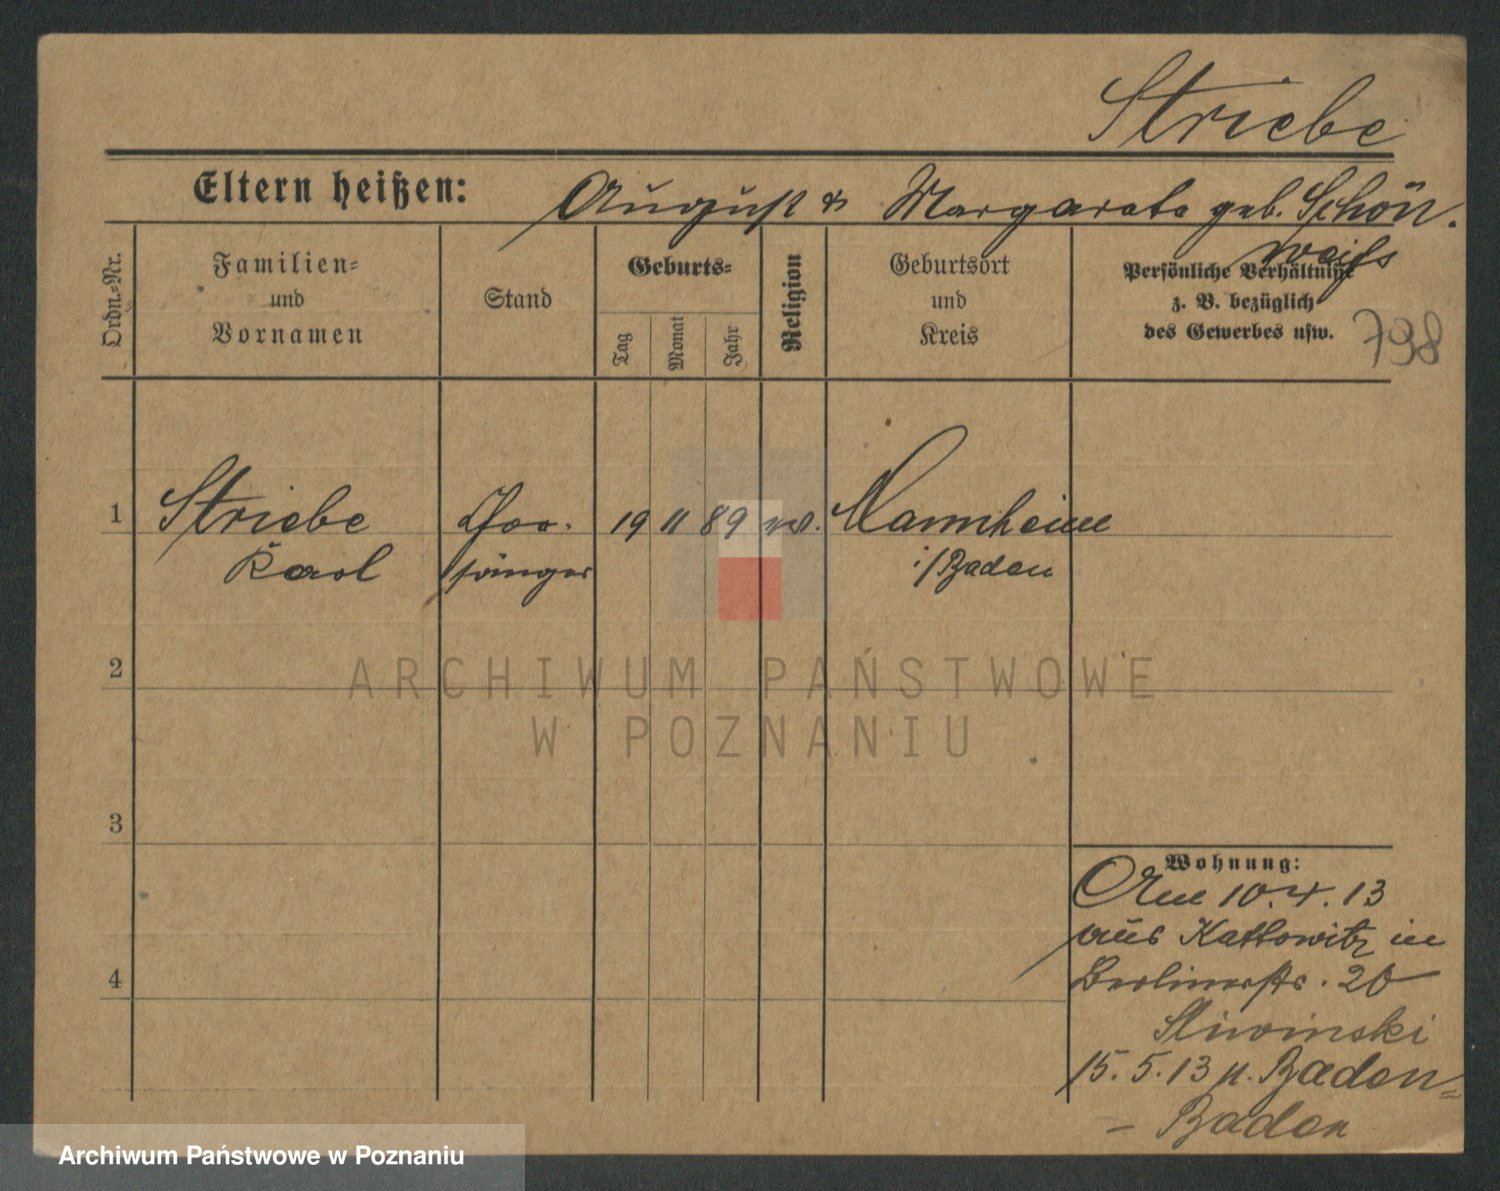 Striebe
Eltern heißen: August & Margarete geb. Schön-
weiss
Ordn.-Nr.
Familien-
und
Vornamen
Stand
Geburts-
Tag
Monat
Jahr
Religion
Geburtsort
und
Kreis
Persönliche Verhältnisse
z. B. bezüglich
des Gewerbes usw.
798
1 Striebe 19 11 89 ev. Mannheim
Karl sänger i/Baden
2
3
4
Wohnung:
Am 10.4.13
aus Kattowitz in
Berlinerstr. 20
Sliwinski
15.5.13 n. Baden-
- Baden
ARCHIWUM PAŃSTWOWE
W POZNANIU
Archiwum Państwowe w Poznaniu